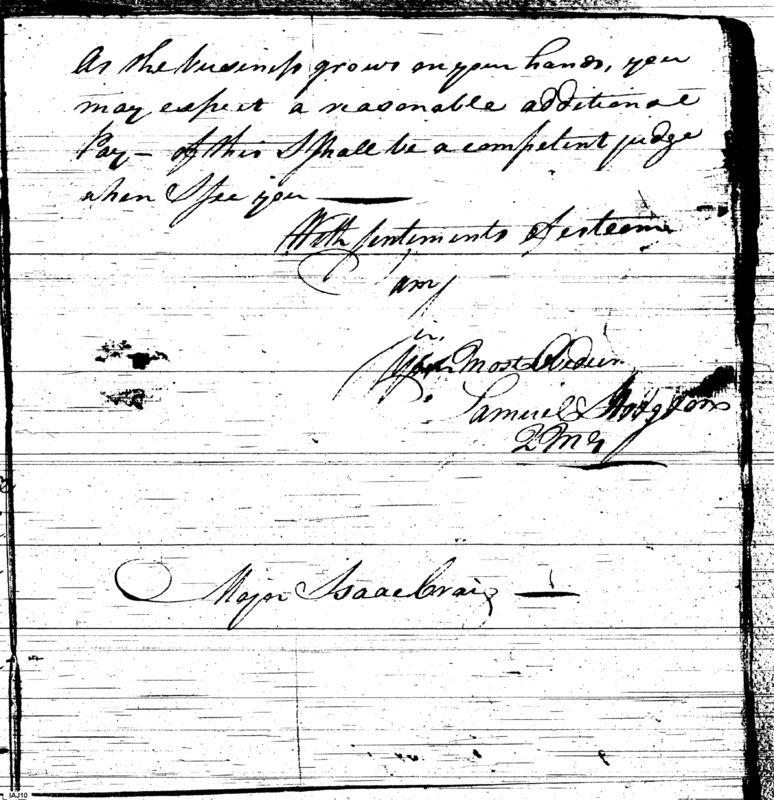 As the business grows on your hands, you
may expect a reasonable additional
Pay — of this I shall be a competent judge
when I see you —
With sentiments of esteem
I am
Sir
Your Most Obedien
Samuel Hodgdon
QMG
Major Isaac Craig —
IAJ10